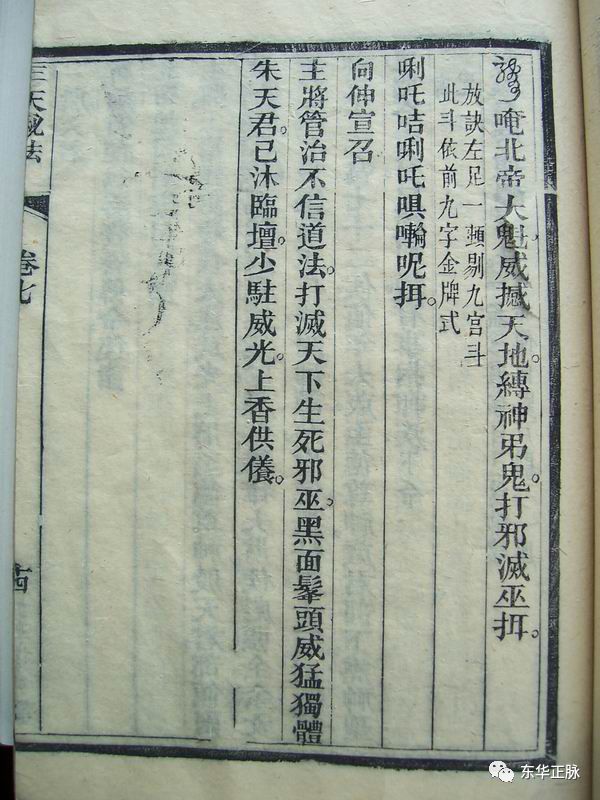 唵北帝大魁威撼天地。縛神弔鬼。打邪滅巫挕。
放訣左足一頓剔九宮斗
此斗依前九字金牌式
唎吒咭唎吒呢挕。
向伸宣召
主將管治不信道法。打滅天下生死邪巫。黑面頭威猛獨體
朱天君。已沐臨壇。少駐威光。上香供儀。
天法
卷七
十四
东华正脉